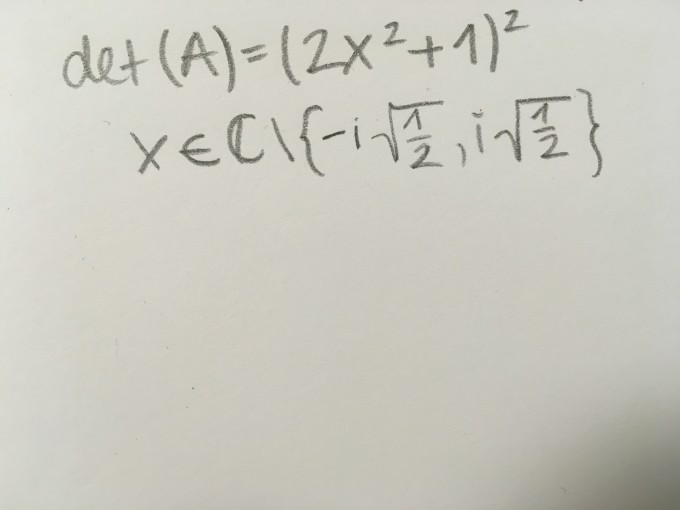 det(A)=(2x²+1)²
x∈ℂ\{-i√(1/2), i√(1/2)}